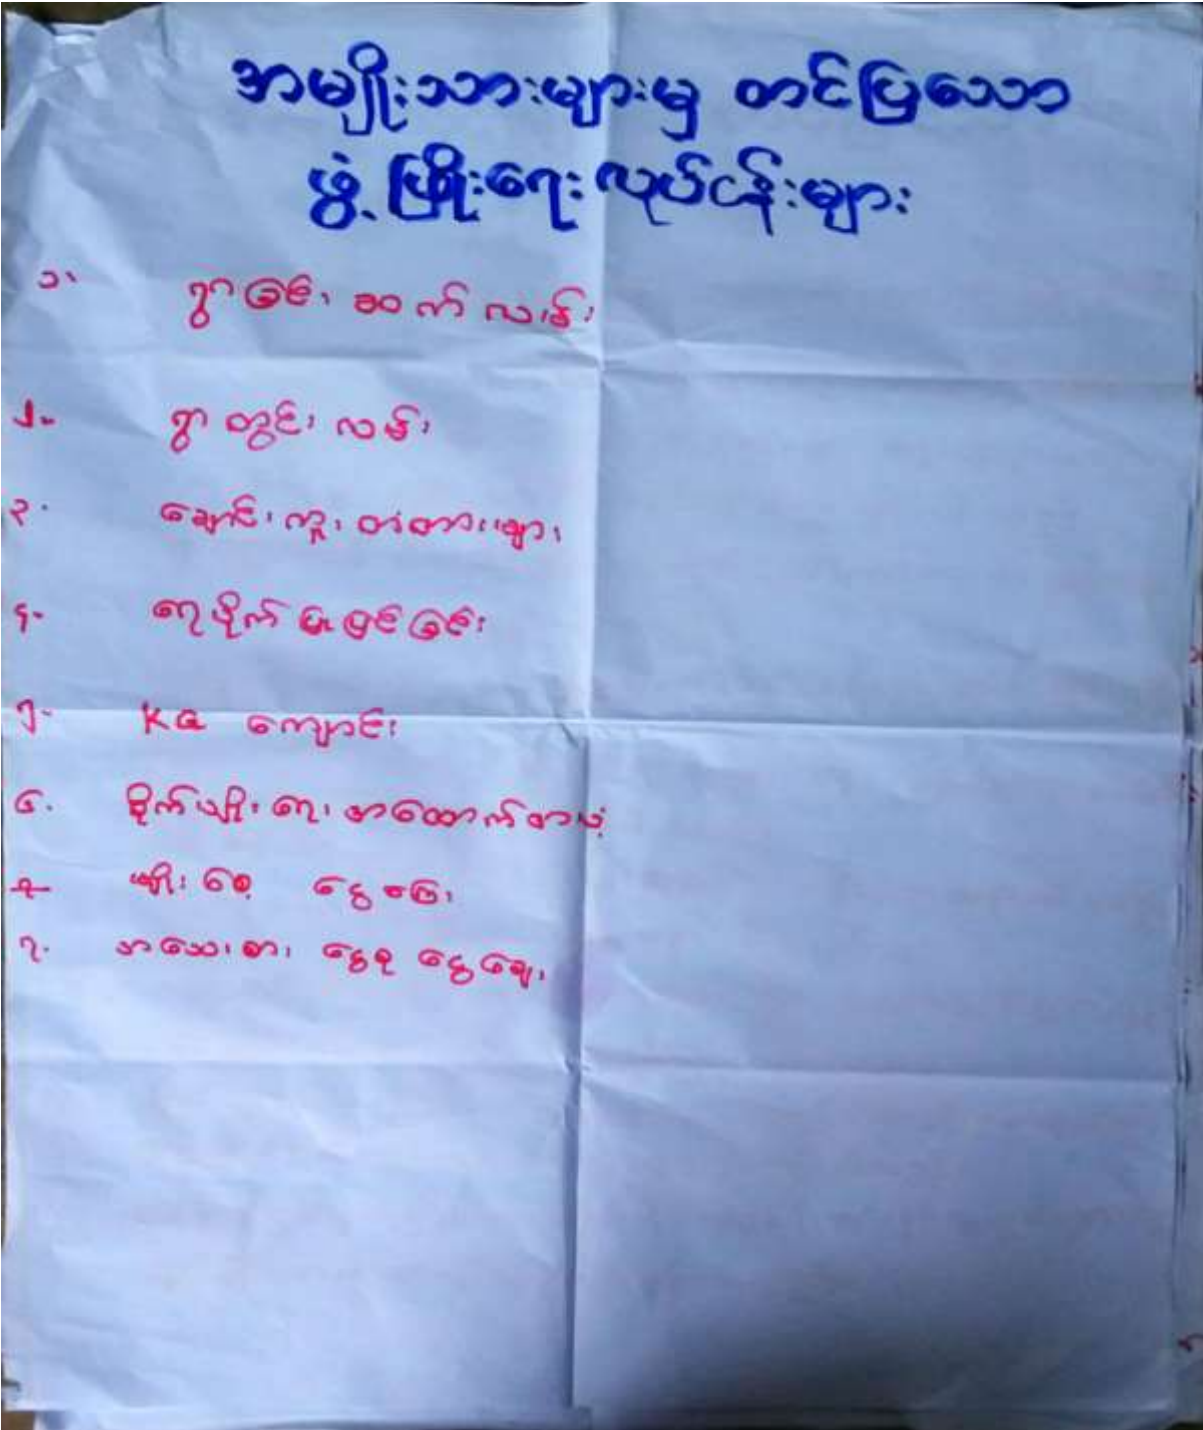 အမျိုးသားများမှ တင်ပြသော
ဖွံ့ဖြိုးရေး လုပ်ငန်းများ
၁။ ရွာချင်း ဆက် လမ်း
၂။ ရွာ တွင်း လမ်း
၃။ ချောင်း ကူး တံတားများ
၄။ ရေပိုက် ပြုပြင်ခြင်း
၅။ KG ကျောင်း
၆။ စိုက်ပျိုး ရေး အထောက်အပံ့
၇။ မျိုး စေ့ ငွေ ကြေး
၈။ အသေး စား ငွေစု ငွေချေး